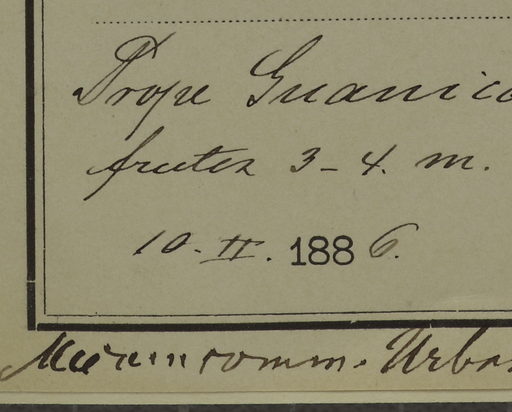 Prope Guanica
frutex 3-4. m.
10. II. 1886.
comm. Urban